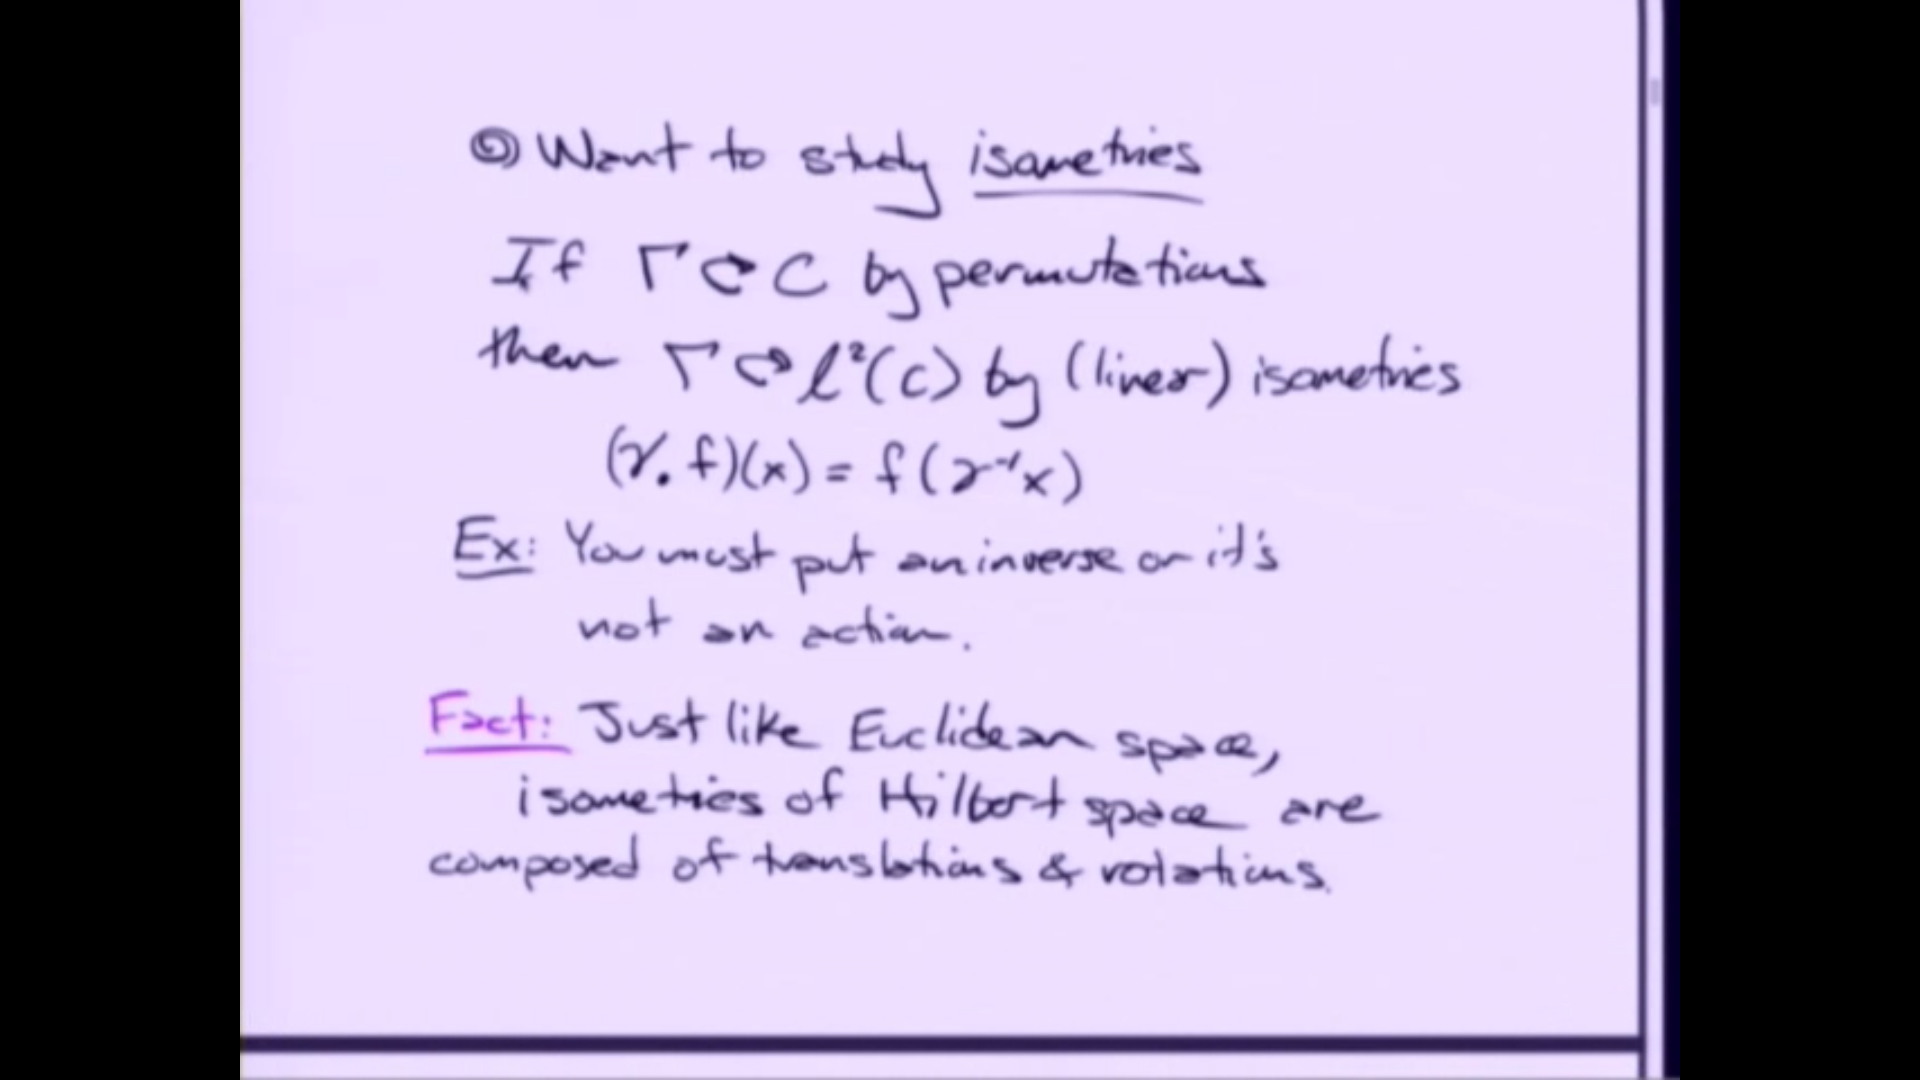 Want to study isometries
If Γ ↻ C by permutations
then Γ ↻ ℓ²(C) by (linear) isometries
(γ. f)(x) = f(γ⁻¹x)
Ex: You must put an inverse or it's
not an action.
Fact: Just like Euclidean space,
isometries of Hilbert space are
composed of translations & rotations.